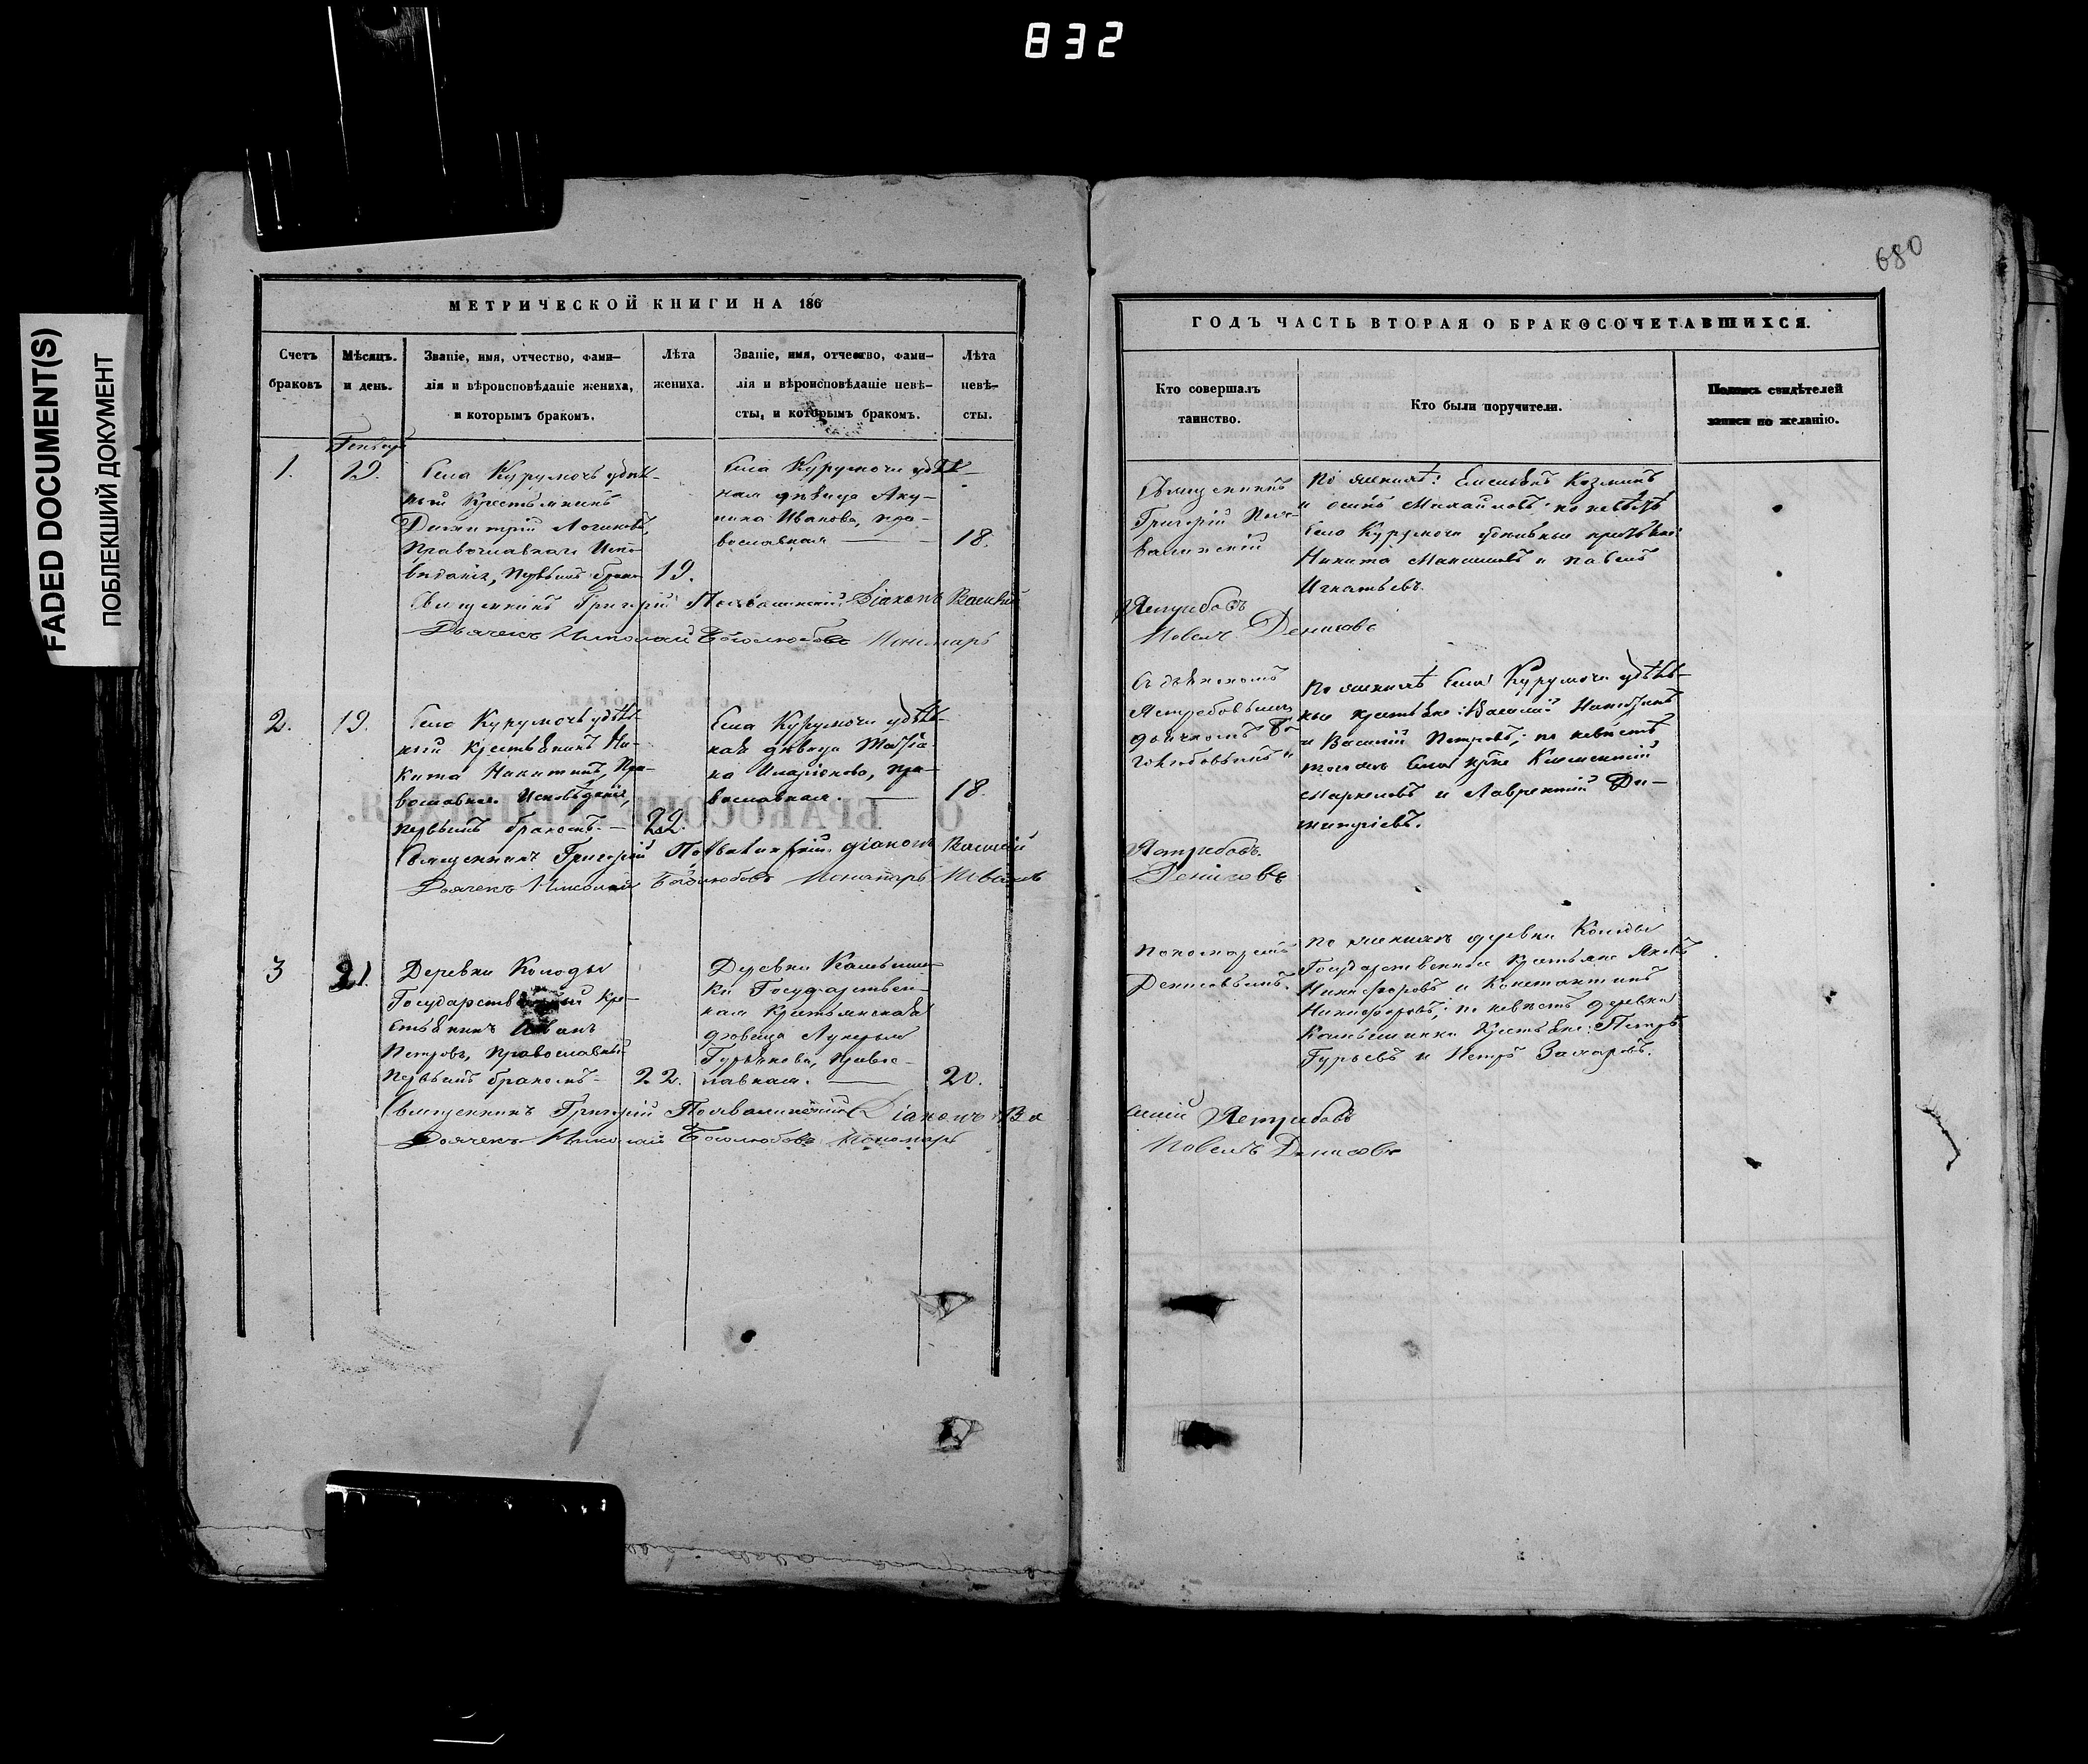 832
FADED DOCUMENT(S)
ПОБЛЕКШИЙ ДОКУМЕНТ
680
МЕТРИЧЕСКОЙ КНИГИ НА 186
Счетъ браковъ
Мѣсяцъ. и день.
Званіе, имя, отчество, фами-
лія и вѣроисповѣданіе жениха,
и которымъ бракомъ.
Лѣта
жениха.
Званіе, имя, отчество, фами-
лія и вѣроисповѣданіе невѣ-
сты, и которымъ бракомъ.
Лѣта
невѣ-
сты.
1.
19.
Села Курумочь удѣль-
ный Крестьянинъ
Димитрій Логиновъ,
Православнаго Испо-
вѣданія, первымъ бракомъ
19.
Села Курумочи
ная дѣвица Аку-
лина Иванова, пра-
вославная
18.
Священникъ Григорій Діаконъ Василій
Дьячекъ Николай Боголюбовъ Пономарь
2.
19.
Села Курумочь удѣль-
ный крестьянинъ Ни-
кита Никитинъ, Пра-
вославнаго Исповѣданія,
первымъ бракомъ.
22.
Села Курумочи удѣль-
ная дѣвица Татіа-
на Иларіонова, пра-
вославная.
18
Священникъ Григорій діаконъ Василій
Дьячекъ Николай Боголюбовъ Пономарь Павелъ
3
21.
Деревни Колоды
Государственный Кре-
стьянинъ Иванъ
Петровъ, православный
первымъ бракомъ
22.
Деревни Камышин-
ки Государствен-
ная Крестьянская
дѣвица Лукерья
Гурьянова, право-
славная.
20.
Священникъ Григорій Діаконъ Ва
Дьячекъ Николай Боголюбовъ Пономарь
ГОДЪ ЧАСТЬ ВТОРАЯ О БРАКОСОЧЕТАВШИХСЯ.
Кто совершалъ
таинство.
Кто были поручители.
Подпись свидѣтелей
записи по желанію.
Священникъ
Григорій
По женихѣ: Елисѣй Козминъ
и Осипъ Михайловъ; по невѣстѣ
Села Курумочи удѣльные крестьяне
Никита Максимовъ и Павелъ
Игнатьевъ.
Ястребовъ
Павелъ Денисовъ
Съ діакономъ
Ястребовымъ
дьячкомъ Бо-
голюбовымъ и
По женихѣ Села Курумочи удѣль-
ные крестьяне: Василій Никитинъ
и Василій Петровъ; по невѣстѣ
тогожъ Села
Маркеловъ и Лаврентій Ди-
митріевъ.
Ястребовъ.
Денисовъ
Пономаремъ
Денисовымъ.
По женихѣ деревни Колоды
Государственные Крестьяне Яковъ
Никифоровъ и Константинъ
Никифоровъ; по невѣстѣ деревни
Камышинки Крестьяне: Петръ
Гурьевъ и Петръ Захаровъ.
силій Ястребовъ
Павелъ Денисовъ